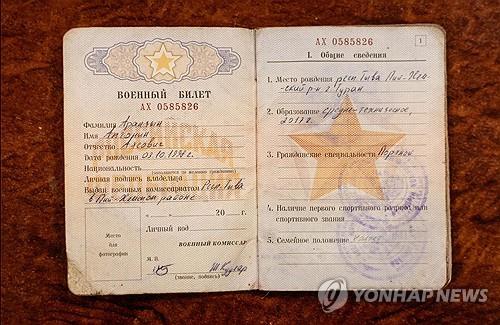 ВОЕННЫЙ БИЛЕТ
АХ 0585826
Фамилия
Имя
Отчество
Дата рождения 03.10.
Национальность
(заполняется по желанию гражданина)
Личная подпись владельца
Выдан военным комиссариатом Респ. Тива
в Пий-Хемском районе
20 г.
Личный код
Место
для
фотографии
ВОЕННЫЙ КОМИССАР
М. П.
(звание, подпись)
АХ 0585826
1
I. Общие сведения
1. Место рождения респ. Тива Пий-Хем-
ский р-н г. Туран
2. Образование средне-техническое,
3. Гражданские специальности
4. Наличие первого спортивного разряда или
спортивного звания
5. Семейное положение
YONHAPNEWS